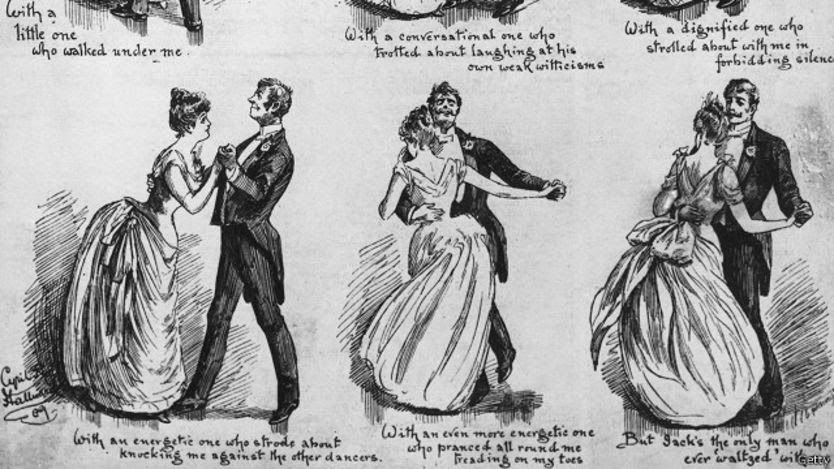 With a
little one
who walked under me.
With a conversational one who
trotted about laughing at his
own weak witticisms
With a dignified one who
strolled about with me in
forbidding silence
Cyril
Hallward
With an energetic one who strode about
knocking me against the other dancers.
With an even more energetic one
who pranced all round me
treading on my toes
But Jack's the only man who
ever 'waltzed' with
Getty